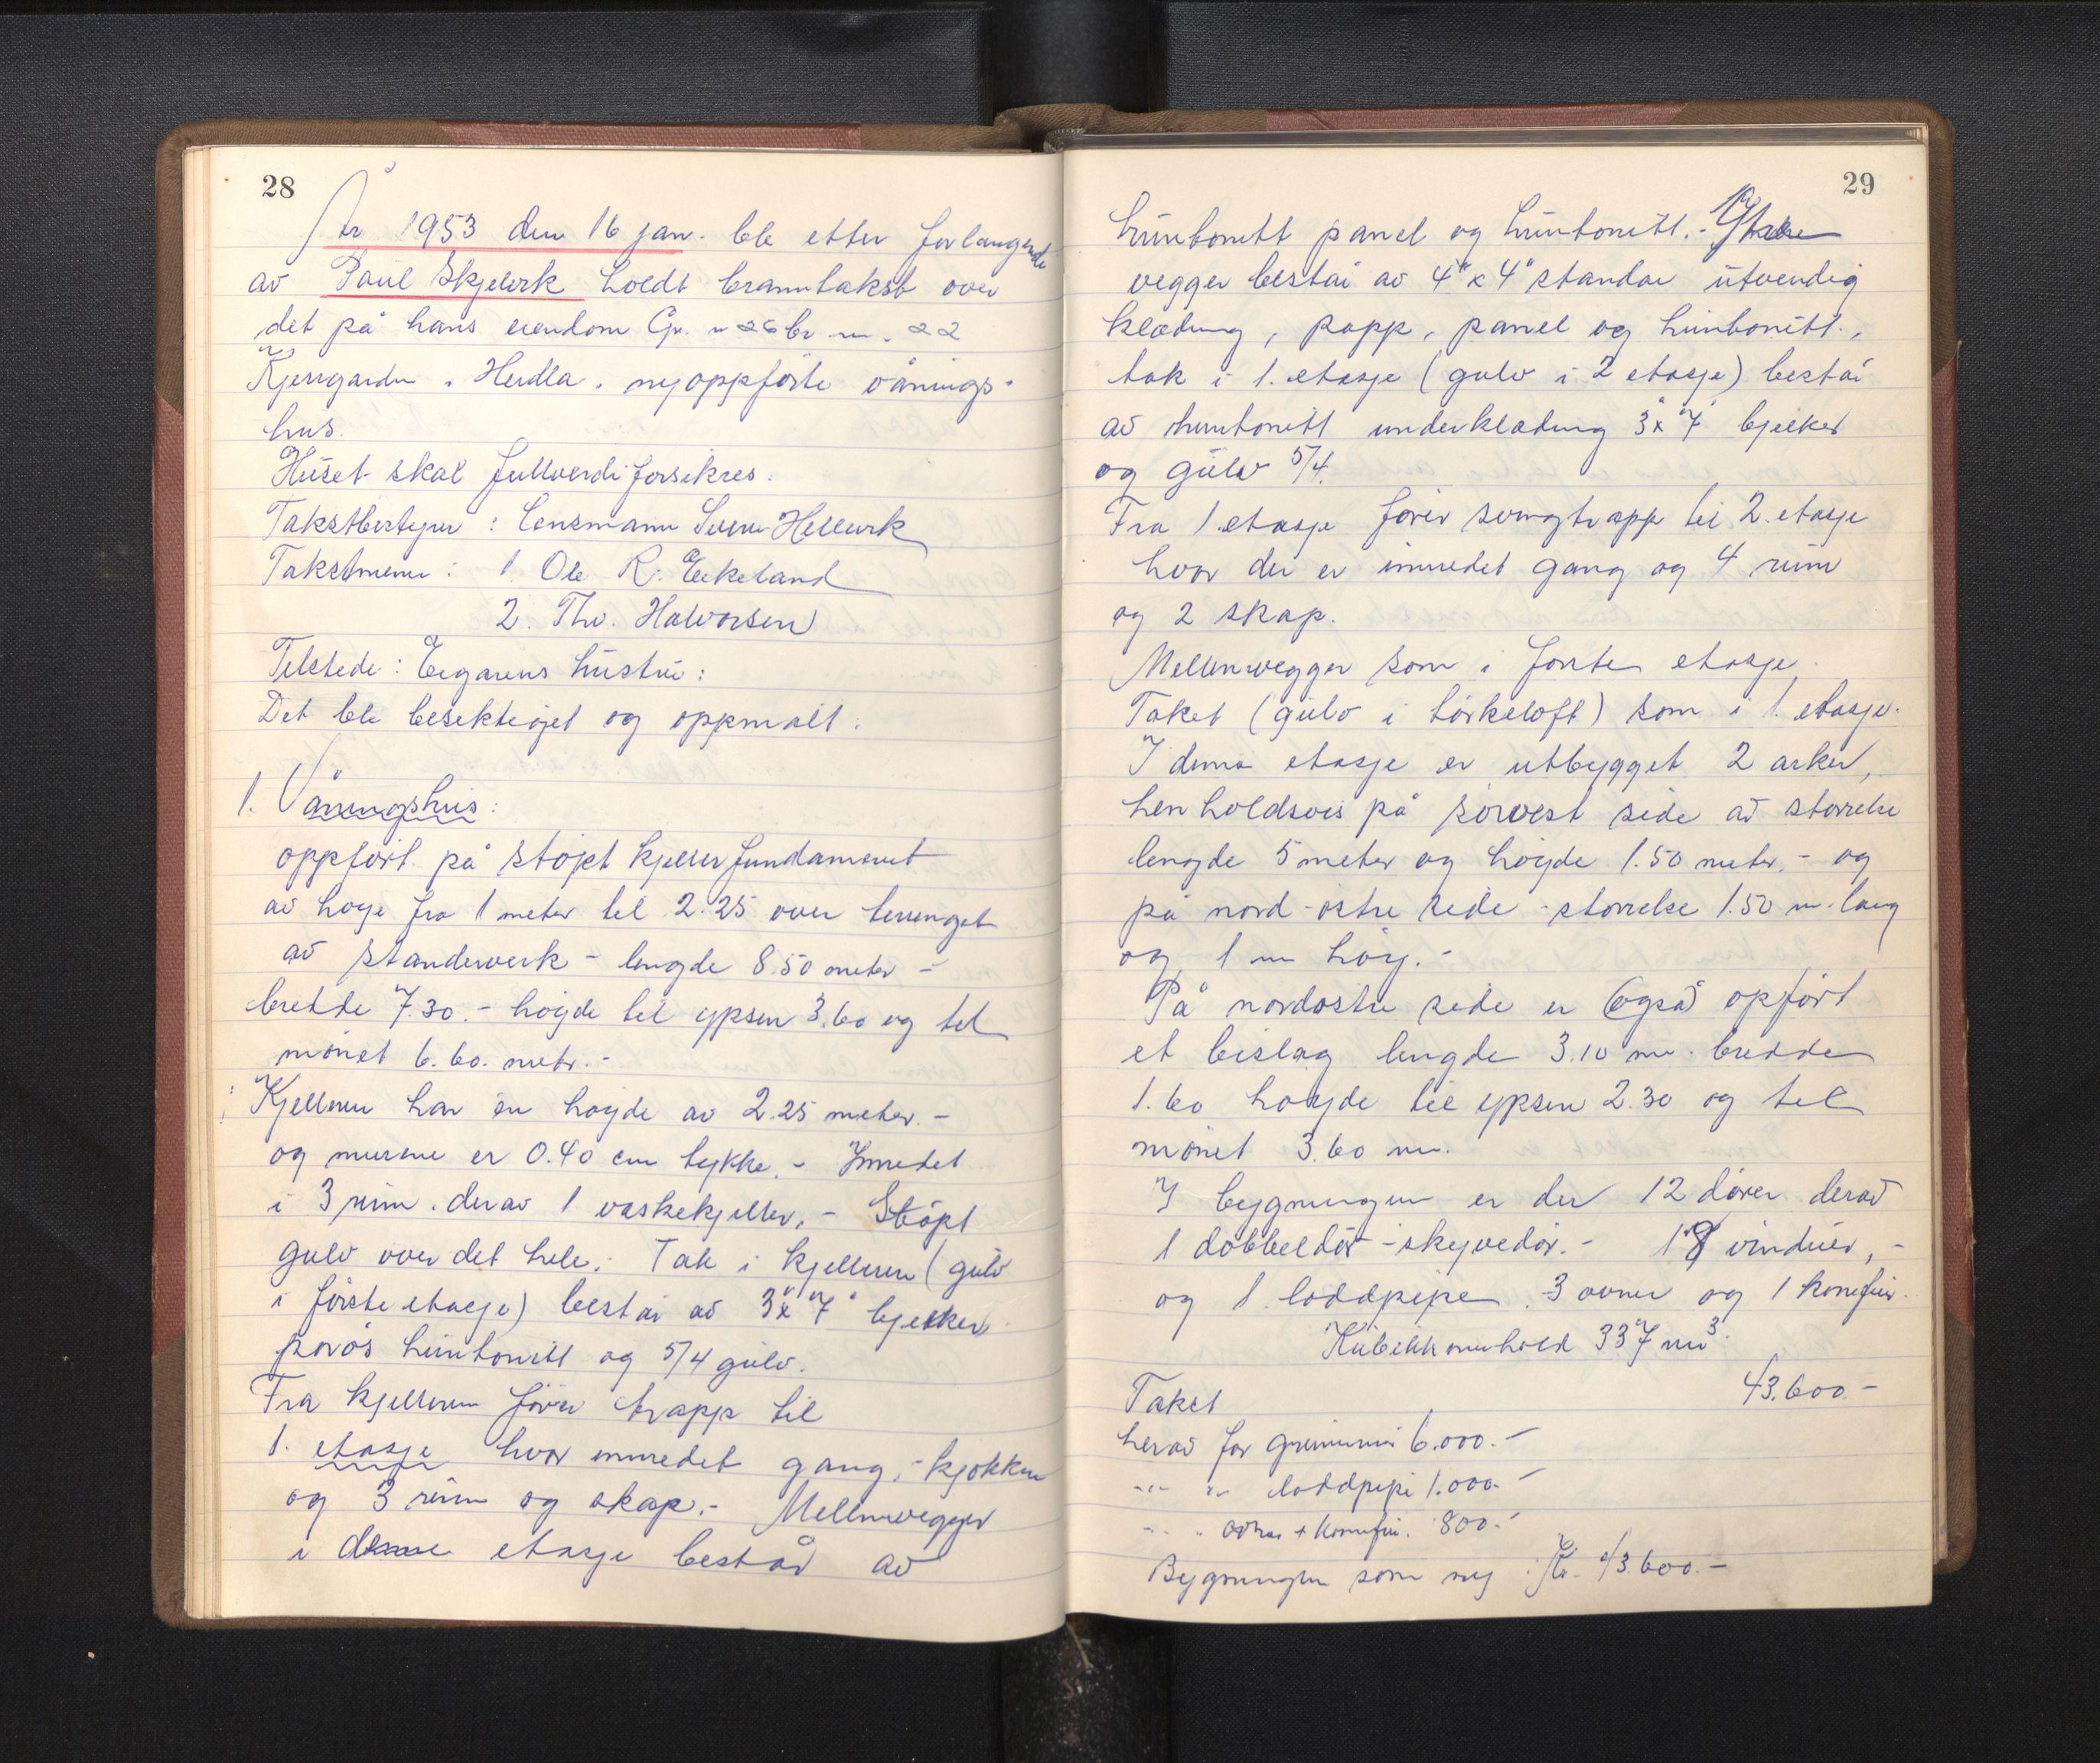 28
År 1953 den 16 jan. ble etter forlangende
av Paul Skjelvik holdt branntakst over
det på hans eiendom Gr. n 26 br nr. 22
Kjerrgarden i Herdla, nyoppførte vånings-
hus.
Huset skal fullverdiforsikres.
Takstbestyrer: Lensmann Sverre Hellevik
Takstmenn: 1. Ole R. Eikeland
2. Thv. Halvorsen
Tilstede: Eigarens hustru:
Det ble besiktiget og oppmålt:
1. Våningshus:
oppført på støpt kjeller fundament
av høge fra 1 meter til 2.25 over terrenget
av standerverk - lengde 8.50 meter -
bredde 7.30. - høyde til ypsen 3.60 og til
mønet 6.60. metr. -
Kjelleren har en høyde av 2.25 meter. -
og murene er 0.40 cm tykke. - Innredet
i 3 rum. derav 1 vaskekjeller. - Støpt
gulv over det hele. Tak i kjelleren (gulv
i første etasje) består av 3" x 7" bjelker
porøs huntonitt og 5/4 gulv.
Fra kjelleren fører trapp til
1. etasje hvor innredet gang, - kjøkken
og 3 rum og skap. - Mellemvegger
i denne etasje består av
29
huntonitt panel og huntonitt. - Ytre
vegger består av 4" x 4" standar utvendig
klædning, papp, panel og huntonitt.,
tak i 1. etasje (gulv i 2 etasje) består
av huntonitt underklædning 3" x 7" bjelker
og gulv 5/4.
Fra 1 etasje fører svingtrapp til 2. etasje
hvor der er innredet gang og 4 rum
og 2 skap.
Mellemvegger som i første etasje.
Taket (gulv i tørkeloft) som i 1. etasje.
I denne etasje er utbygget 2 arker,
henholdsvis på sørvest side av størrelse
lengde 5 meter og høyde 1.50 meter. - og
på nord-østre side - størrelse 1.50 m. lang
og 1 m høy. -
På nordøstre side er (også) opført
et bislag lengde 3.10 m. bredde
1.60 høyde til ypsen 2.30 og til
mønet 3.60 m.
I bygningen er der 12 dører derav
1 dobbeldør - skyvedør. - 18 vinduer, -
og 1 loddpipe. 3 ovner og 1 komfur.
Kubikkinnhold 337 m³.
Takst 43.600. -
herav for grunnmur 6.000. -
-"- " loddpipe 1.000. -
-"- " ovner + komfur. 800. -
Bygningen som ny : Kr. 43.600. -